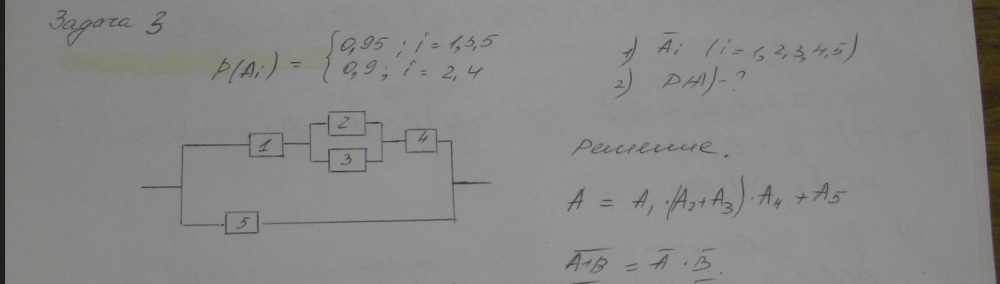 Задача 3
P(Ai) = { 0,95 ; i = 1,3,5
0,9 ; i = 2,4
1) Āi (i = 1, 2, 3, 4, 5)
2) P(A) - ?
1
2
3
4
5
Решение.
A = A₁ · (A₂ + A₃) · A₄ + A₅
A̅+̅B̅ = A̅ · B̅.